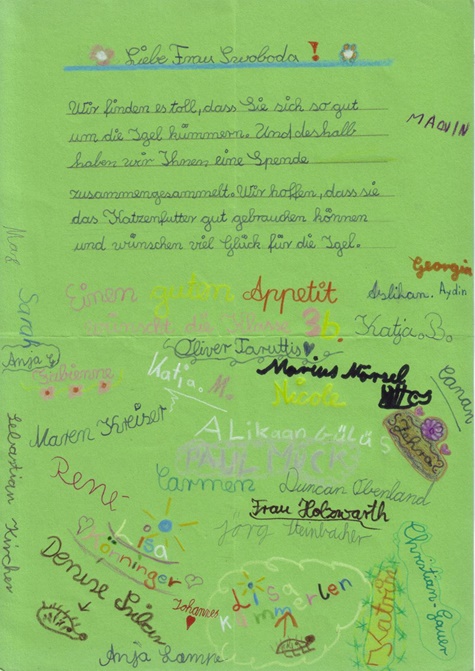 Liebe Frau Swoboda !
Wir finden es toll, dass Sie sich so gut
um die Igel kümmern. Und deshalb
haben wir Ihnen eine Spende
zusammengesammelt. Wir hoffen, dass sie
das Katzenfutter gut gebrauchen können
und wünschen viel Glück für die Igel.
MARVIN
Georgia
Einen guten Appetit
Aslihan. Aydin
wünscht die Klasse 3b.
Katja. B.
Sarah
Oliver Taruttis
Anja L
Fabienne
Katja. M.
Marius
Nicole
Canan
Maren Kreiser
ALikaan GÜLÜŞ
Zehra
PAUL MÜCK
René
Carmen
Duncan Obenland
Frau Holzwarth
Jörg Steinbacher
Sebastian Kircher
Lisa
Hönninger
Denise
Johannes
Lisa
Kämmerlen
Katrin
Christian. Gauer
Anja Lampe